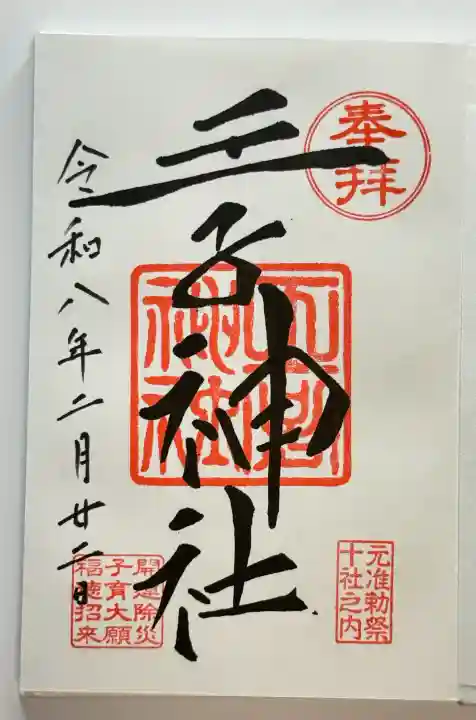 奉拝
王子神社
王子
神社
元准勅祭
十社之内
開運除災
子育大願
福徳招来
令和八年二月廿二日